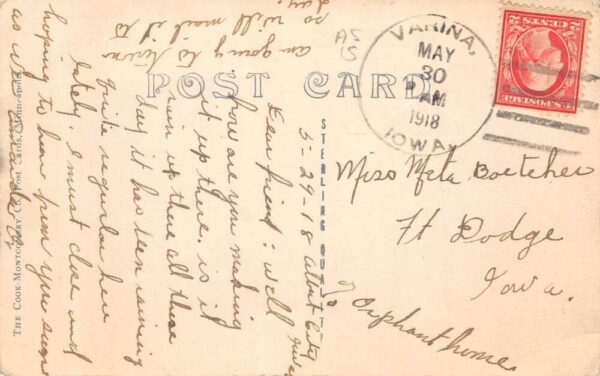 POST CARD
THE COOK-MONTGOMERY CO. Post Cards, Minneapolis
STERLING QUALITY
VARINA,
MAY
30
AM
1918
IOWA
2 CENTS 2
U.S. POSTAGE
Miss Meta Boetcher
Ft Dodge
Iowa.
% Orphant home.
5-29-18 Albert City
Iowa
Dear friend: Well
how are you making
it up there. is it
rain up there all these
day it has been raining
quite regular here
lately. I must close and
hoping to hear from you soon
as we
am going to town
so will mail it to
day.